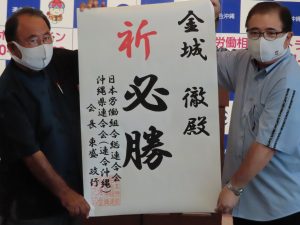 金城 徹殿
祈 必勝
日本労働組合総連合会
沖縄県連合会(連合沖縄)
会長 東盛政行